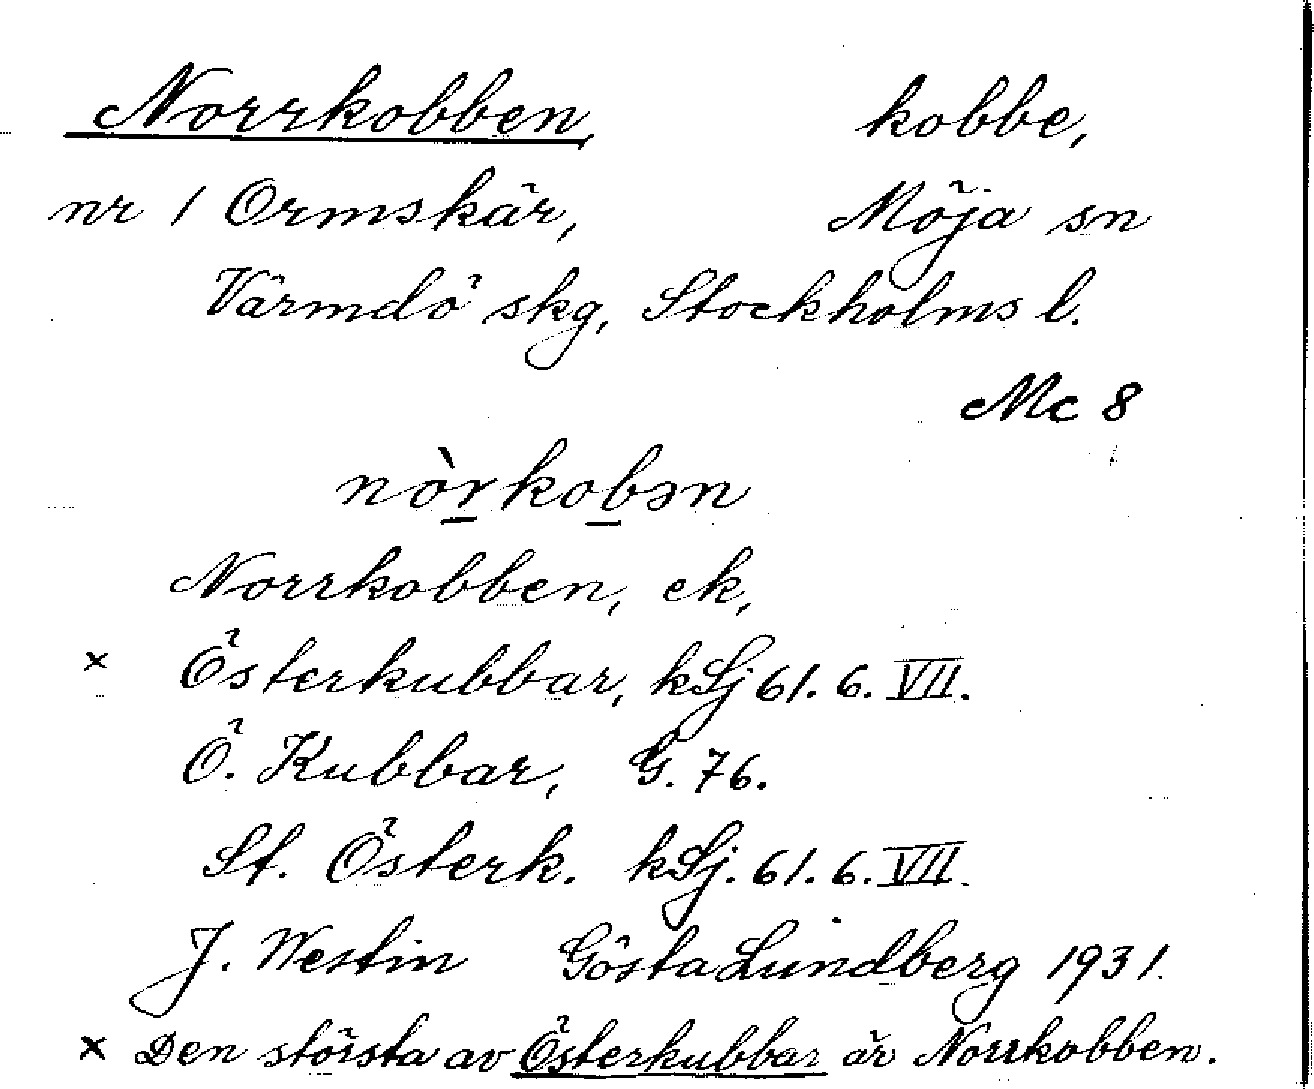 Norrkobben, kobbe,
nr 1 Ormskär, Möja sn
Värmdö skg, Stockholms l.
Mc 8
nòrkobən
Norrkobben, ek,
× Österkubbar, kSj 61. 6. VII.
Ö. Kubbar, G. 76.
St. Österk. kSj. 61. 6. VII.
J. Westin Gösta Lundberg 1931.
× Den största av Österkubbar är Norrkobben.